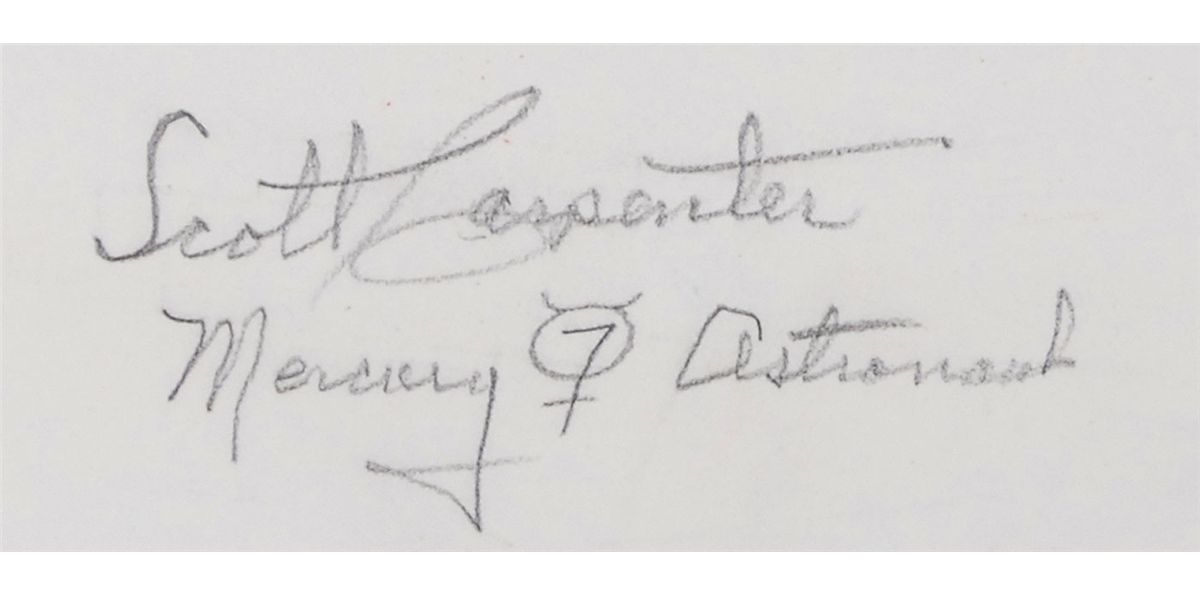 Scott Carpenter
Mercury 7 Astronaut